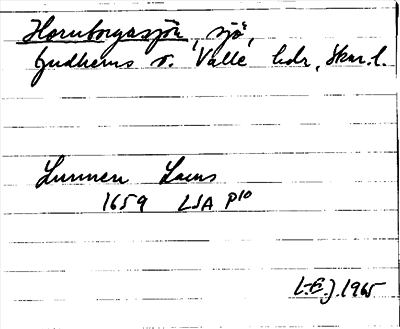 Hornborgasjön, sjö,
Gudhems o. Valle hdr, Skar. l.
Lunnen Lacus
1659 LSA P10
L-E.J. 1965